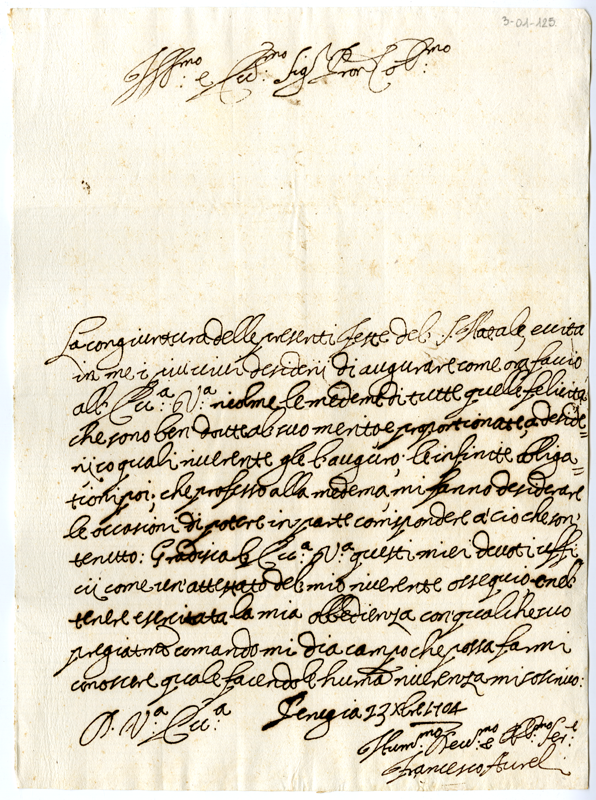 3-01-125.
Ill.mo e Ecc.mo Sig.r P.ron Col.mo
La congiuntura delle presenti feste del S. Natale, eccita
in me i più vivi desiderii di augurare come ora faccio
all' Ecc.a V.a ricolme le medeme di tutte quelle felicità
che sono ben dovute al suo merito e proportionate, a deside=
rii co quali riverente gle l'auguro; le infinite obliga=
tioni poi, che professo alla medema, mi fanno desiderare
le occasioni di potere in parte corrispondere a' ciò che son'
tenutto: Gradisca l' Ecc.a V.a questi miei devoti uffi
cii come un' attestato del mio riverente ossequio, e nel
tenere esercitata la mia obbedienza con qualche suo
pregiatmo comando mi dia campo che possa farmi
conoscere quale facendole huma riverenza mi soscrivo:
D. V.a Ecc.a
Venezia 23 Xbre 1704
Hum.mo Dev.mo e Obb.mo Ser.e
Francesco Aureli